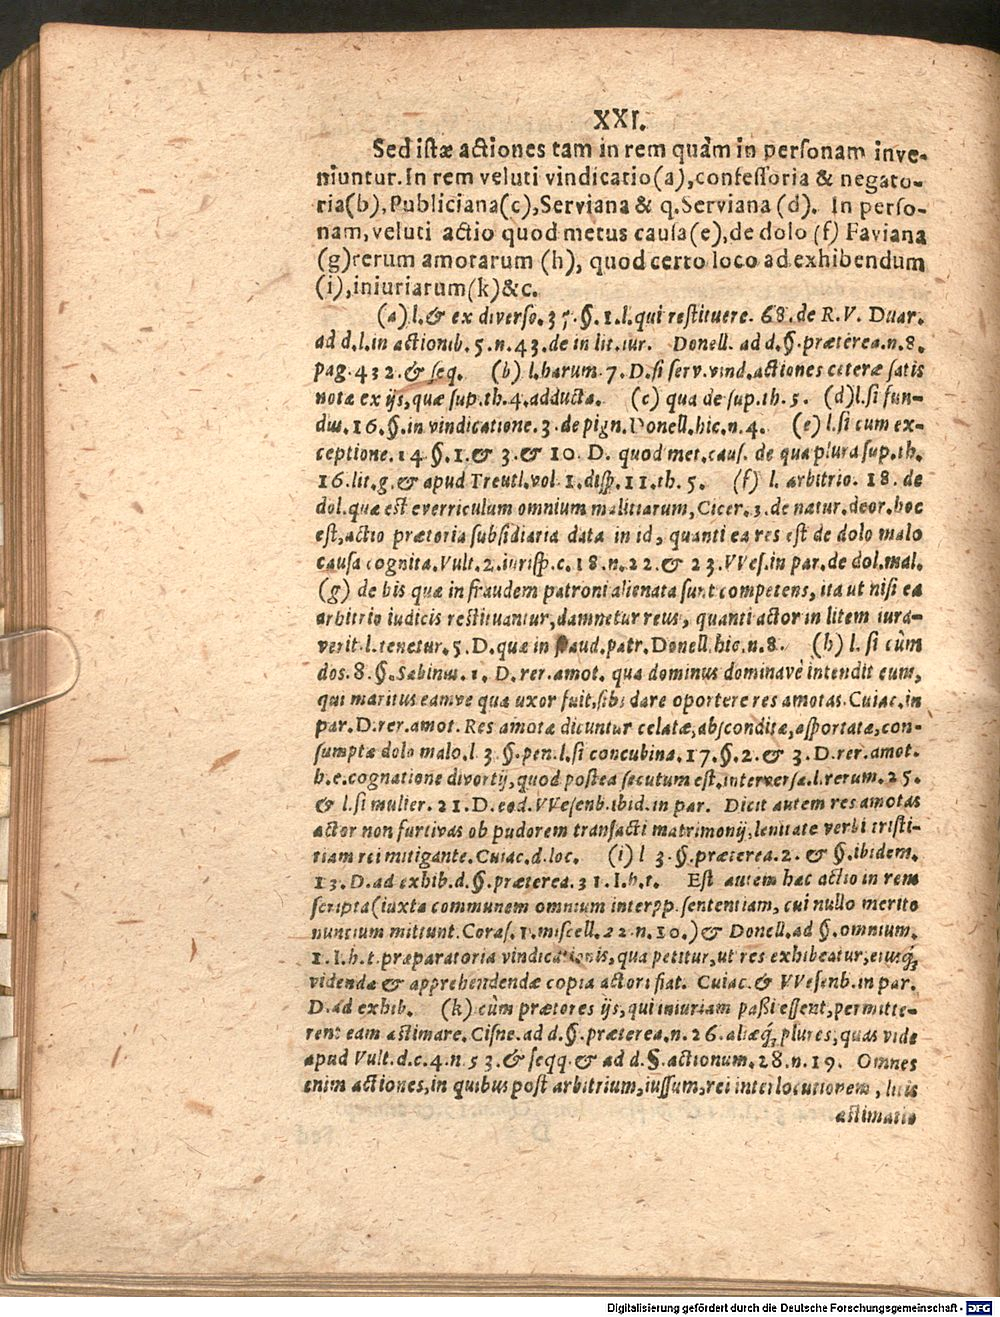 XXI.
Sed istæ actiones tam in rem quàm in personam inve-
niuntur. In rem veluti vindicatio (a), confessoria & negato-
ria (b), Publiciana (c), Serviana & q. Serviana (d). In perso-
nam, veluti actio quod metus causa (e), de dolo (f) Faviana
(g) rerum amotarum (h), quod certo loco ad exhibendum
(i), iniuriarum (k) &c.
(a) l. & ex diverso. 35. §. 1. l. qui restituere. 68. de R. V. Duar.
ad d. l. in actionib. 5. n. 43. de in lit. iur. Donell. ad d. §. præterea. n. 8.
pag. 432. & seq. (b) l. harum. 7. D. si serv. vind. actiones ceteræ satis
notæ ex ijs, quæ sup. th. 4. adducta. (c) qua de sup. th. 5. (d) l. si fun-
dus. 16. §. in vindicatione. 3. de pign. Donell. hic. n. 4. (e) l. si cum ex-
ceptione. 14. §. 1. & 3. & 10. D. quod met. caus. de qua plura sup. th.
16. lit. g. & apud Treutl. vol. 1. disp. 11. th. 5. (f) l. arbitrio. 18. de
dol. quæ est everriculum omnium malitiarum, Cicer. 3. de natur. deor. hoc
est, actio prætoria subsidiaria data in id, quanti ea res est de dolo malo
causa cognita. Vult. 2. iurisp. c. 18. n. 22. & 23. VVes. in par. de dol. mal.
(g) de his quæ in fraudem patroni alienata sunt competens, ita ut nisi ea
arbitrio iudicis restituantur, damnetur reus, quanti actor in litem iura-
verit. l. tenetur. 5. D. quæ in fraud. patr. Donell. hic. n. 8. (h) l. si cùm
dos. 8. §. Sabinus. 1. D. rer. amot. qua dominus dominavè intendit eum,
qui maritus eamve qua uxor fuit, sibi dare oportere res amotas. Cuiac. in
par. D. rer. amot. Res amotæ dicuntur celatæ, absconditæ, asportatæ, con-
sumptæ dolo malo. l. 3. §. pen. l. si concubina. 17. §. 2. & 3. D. rer. amot.
h. e. cognatione divortij, quod postea secutum est, interversæ. l. rerum. 25.
& l. si mulier. 21. D. eod. VVesenb. ibid. in par. Dicit autem res amotas
actor non furtivas ob pudorem transacti matrimonij, lenitate verbi tristi-
tiam rei mitigante. Cuiac. d. loc. (i) l 3. §. præterea. 2. & §. ibidem.
13. D. ad exhib. d. §. præterea. 31. I. h. t. Est autem hæc actio in rem
scripta (iuxta communem omnium interpp. sententiam, cui nullo merito
nuncium mittunt. Coras. 1. miscell. 22. n. 10.) & Donell. ad §. omnium.
1. I. h. t. præparatoria vindicationis, qua petitur, ut res exhibeatur, eiusq́;
videndæ & apprehendendæ copia actori fiat. Cuiac. & VVesenb. in par.
D. ad exhib. (k) cùm prætores ijs, qui iniuriam paßi essent, permitte-
rent eam æstimare. Cisne. ad d. §. præterea. n. 26. aliæq́; plures, quas vide
apud Vult. d. c. 4. n. 53. & seqq. & ad d. §. actionum. 28. n. 19. Omnes
enim actiones, in quibus post arbitrium, iussum, rei interlocutionem, litis
æstimatio
Digitalisierung gefördert durch die Deutsche Forschungsgemeinschaft - DFG